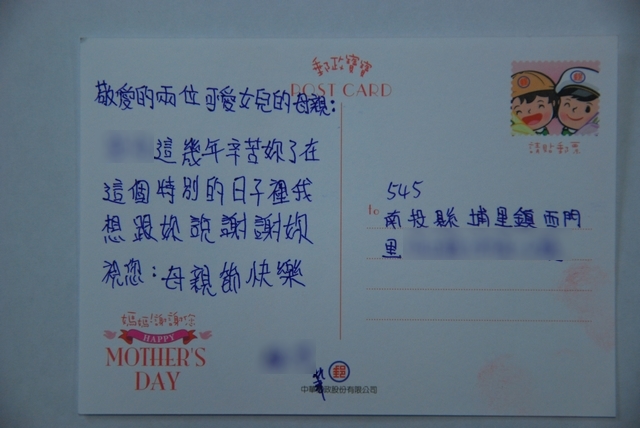 郵政寶寶
POST CARD
敬愛的兩位可愛女兒的母親:
這幾年辛苦妳了在
這個特別的日子裡我
想跟妳說謝謝妳
祝您:母親節快樂
媽媽!謝謝你
HAPPY
MOTHER'S
DAY
筆
郵
中華郵政股份有限公司
請貼郵票
545
to 南投縣埔里鎮西門
里